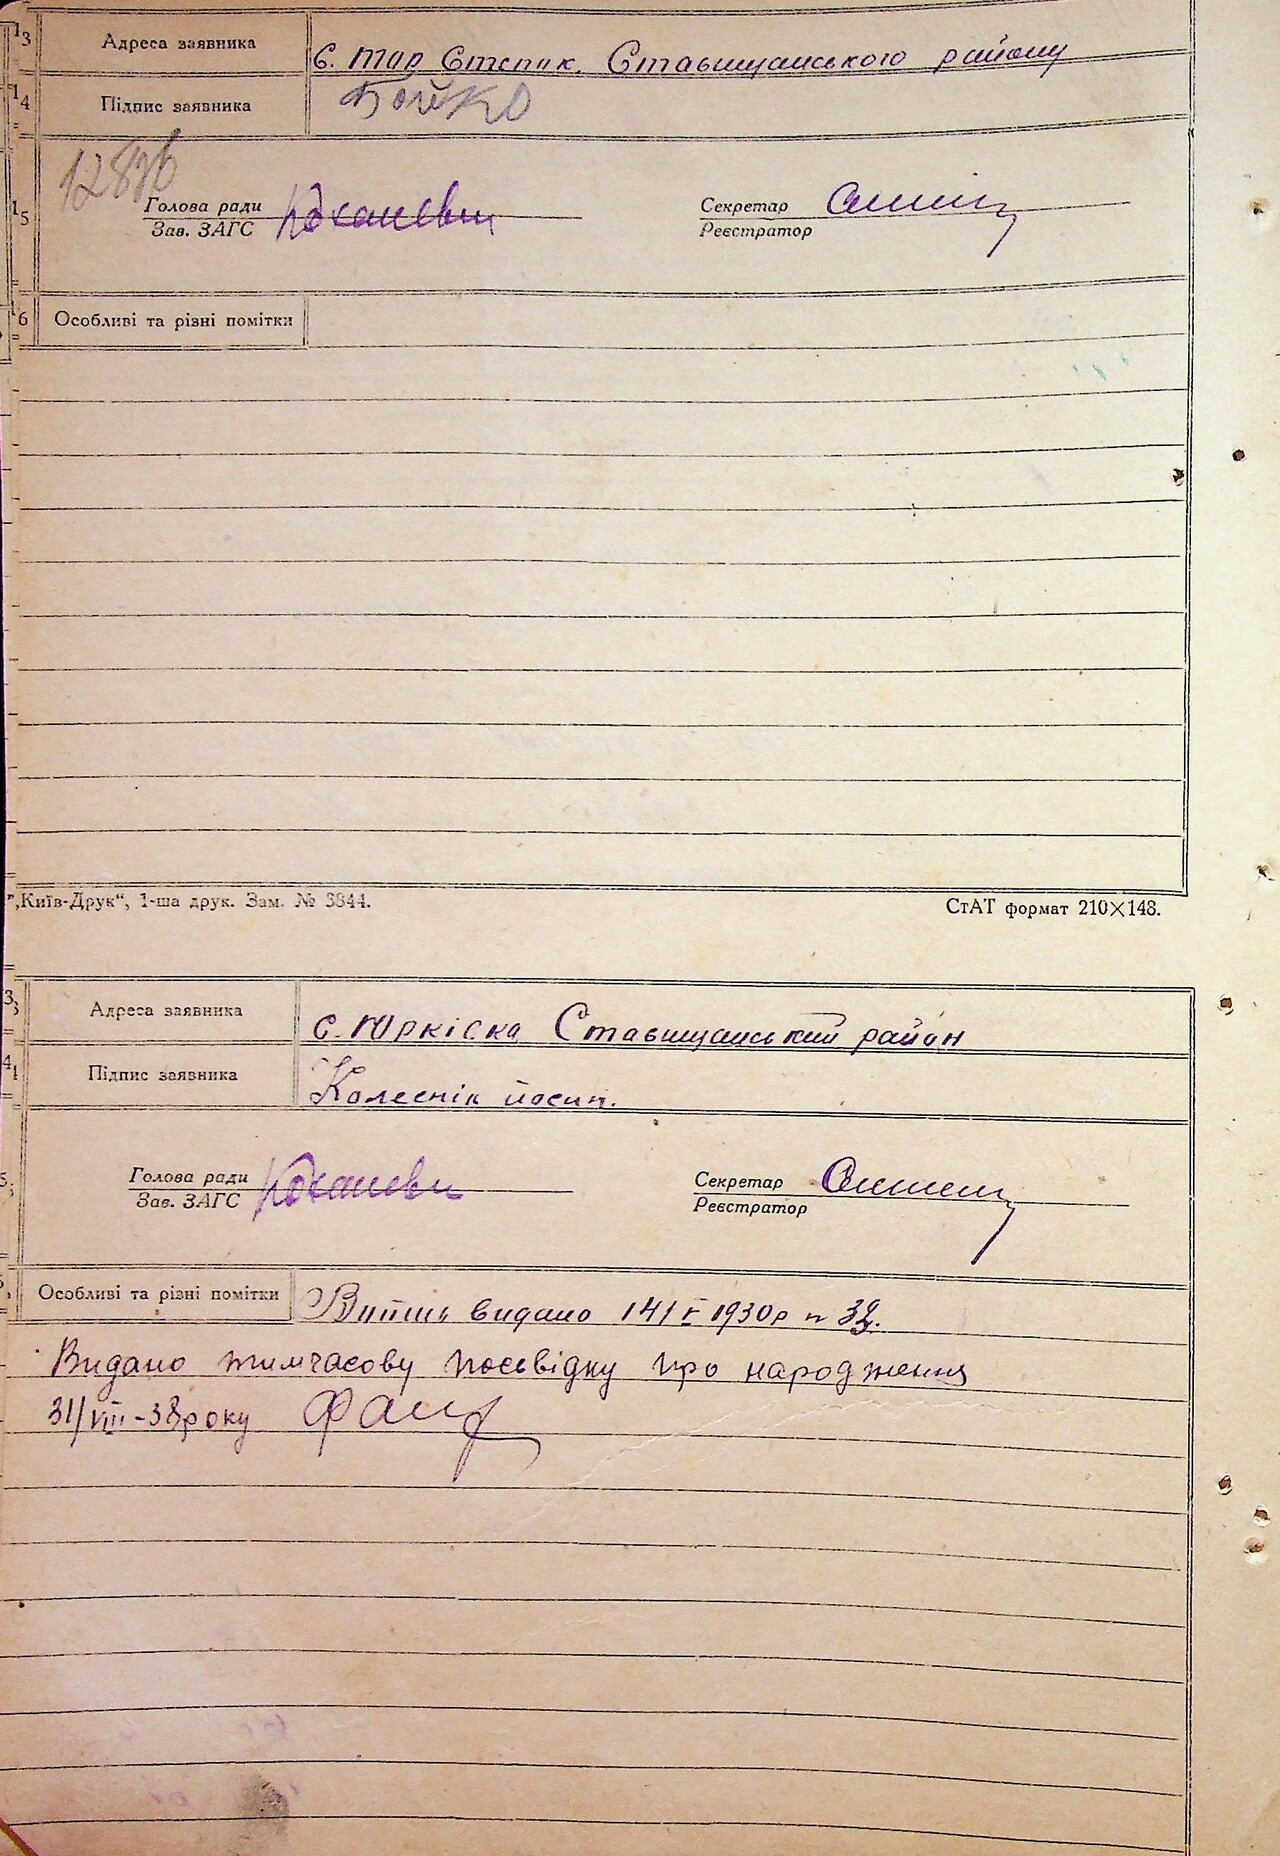 13 Адреса заявника с. Ставищанського району
14 Підпис заявника Бойко
15 Голова ради Секретар
Зав. ЗАГС Реєстратор
16 Особливі та різні помітки
„Київ-Друк“, 1-ша друк. Зам. № 3844. СтАТ формат 210×148.
Адреса заявника с. Юрківка Ставищанський район
Підпис заявника Колеснік йосип.
Голова ради Секретар
Зав. ЗАГС Реєстратор
Особливі та різні помітки Витяг видано 1930р
Видано тимчасову посьвідку про народження
31/VIII-38року